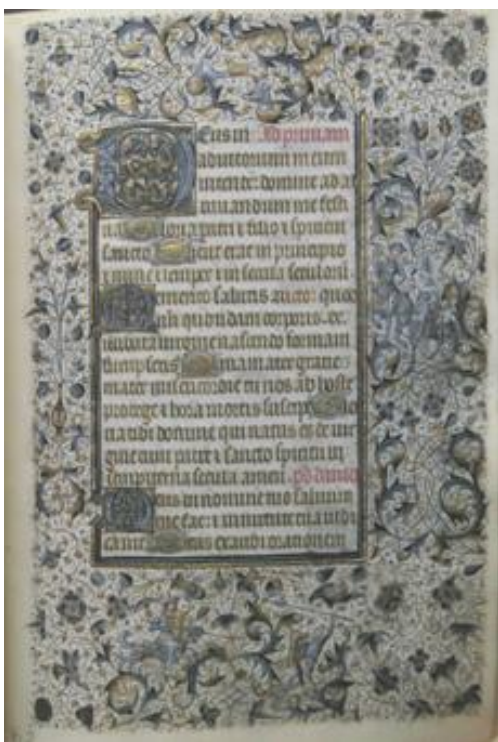 Deus in Ad primam
adiutorium meum
intende. domine ad ad
iuuandum me festi
na. Gloria patri & filio & spiritui
sancto Sicut erat in principio
& nunc & semper & in secula seculorum
Memento salutis auctor quod
nostri quondam corporis. ex
illibata uirgine nascendo formam
sumpseris Maria mater gratie
mater misericordie tu nos ab hoste
protege & hora mortis suscipe Glo
ria tibi domine qui natus es de uir
gine cum patre & sancto spiritu in
sempiterna secula amen.
Deus in nomine tuo saluum
me fac: & in uirtute tua iudi
ca me Deus exaudi orationem